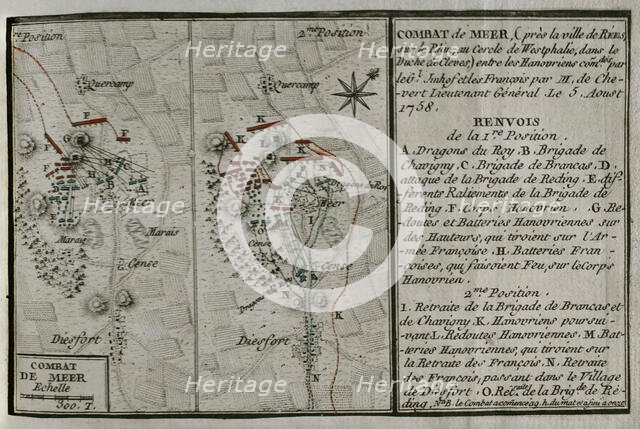 re Position
2.me Position
Quercamp
Quercamp
Meer
Meer
Marais
Marais
Cense
Cense
Cense
Diesfort
Diesfort
COMBAT
DE MEER
Echelle
300. T.
COMBAT DE MEER, (près la ville de REES,
sur le Rhin, au Cercle de Westphalie, dans le
Duché de Cleves) entre les Hanovriens com.dés par
le G.l Imhof et les François par M. de Che-
vert Lieutenant Général Le 5. Aoust
1758.
RENVOIS
de la 1.re Position.
A. Dragons du Roy. B. Brigade de
Chavigny. C. Brigade de Brancas. D.
attaque de la Brigade de Reding. E. dif-
férents Raliements de la Brigade de
Reding. F. Corps Hanovrien. G. Re-
doutes et Batteries Hanovriennes sur
des Hauteurs, qui tiroient sur l'Ar-
mée Françoise. H. Batteries Fran-
çoises, qui faisoient Feu, sur le Corps
Hanovrien.
2.me Position.
I. Retraite de la Brigade de Brancas et
de Chavigny. K. Hanovriens poursui-
vant. L. Redoutes Hanovriennes. M. Bat-
teries Hanovriennes, qui tiroient sur
la Retraite des François. N. Retraite
des François, passant dans le Village
de Diesfort. O. Ret.raite de la Brig.de de Ré-
ding. N.ta B. le Combat a comencé a 9. h. du mat. et a fini a onze